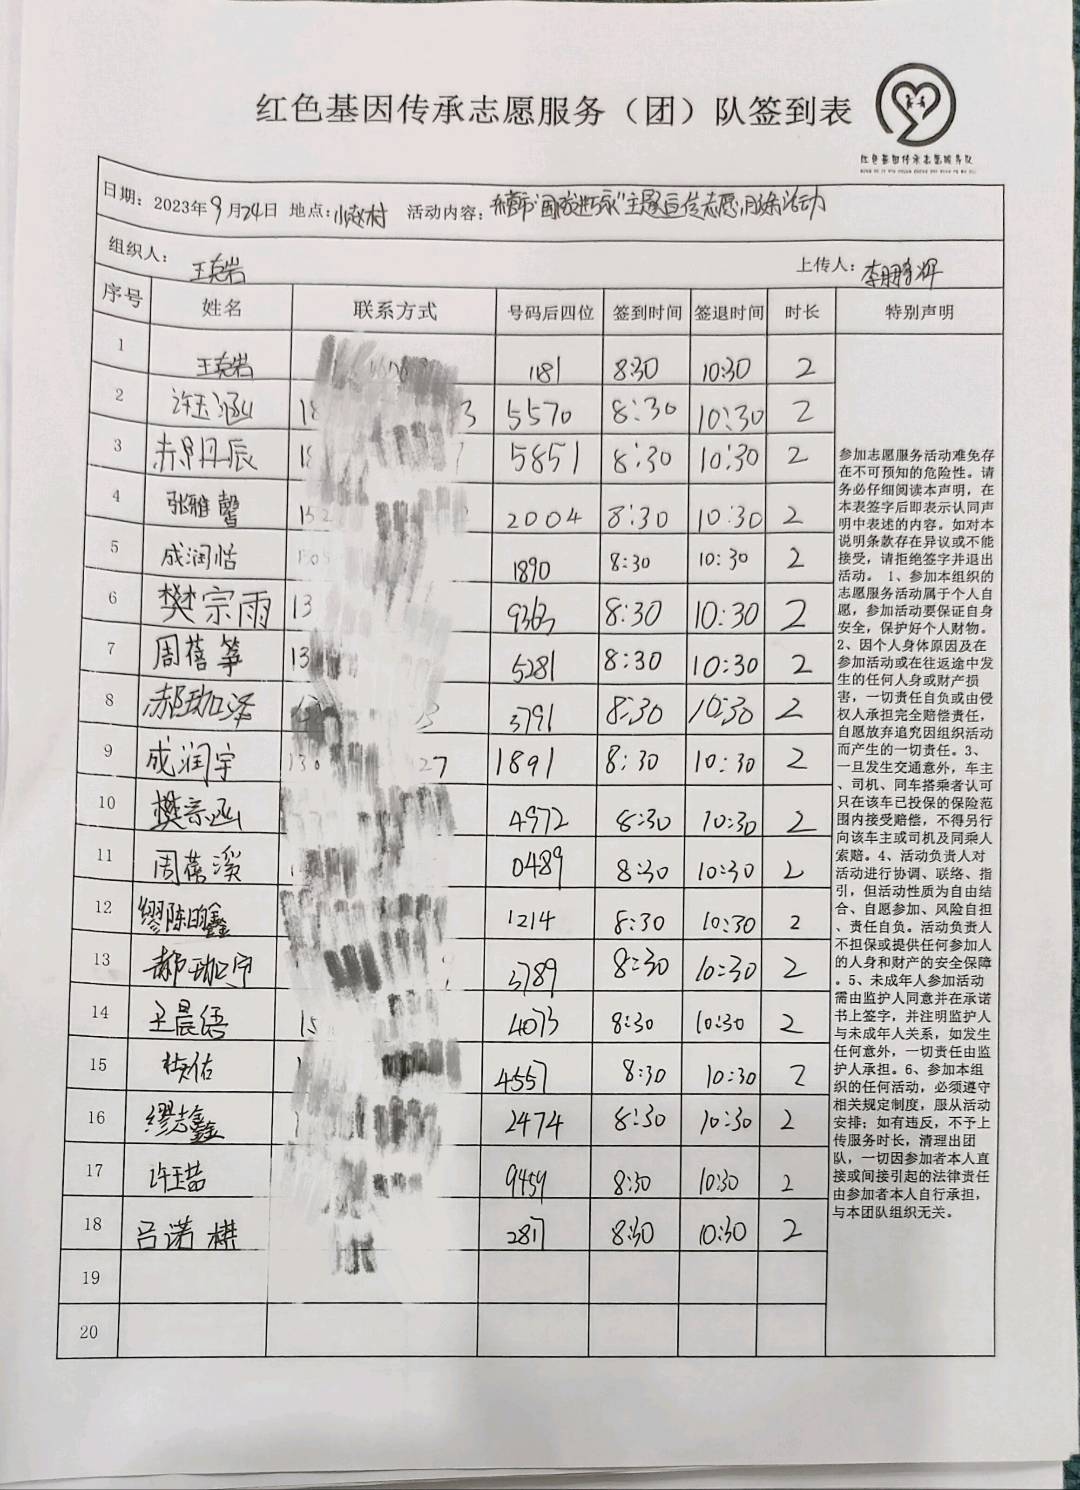 红色基因传承志愿服务（团）队签到表
红色基因传承志愿服务队
日期：2023年9月24日 地点：小赵村 活动内容：主题宣传志愿服务活动
组织人：王克岩 上传人：李鹏辉
序号 姓名 联系方式 号码后四位 签到时间 签退时间 时长 特别声明
1 王克岩 1181 8:30 10:30 2
2 许玉涵 18 3 5570 8:30 10:30 2
3 丹辰 18 5851 8:30 10:30 2
4 张雅馨 152 2004 8:30 10:30 2
5 成润怡 1890 8:30 10:30 2
6 樊宗雨 13 9363 8:30 10:30 2
7 周蓓筝 13 5281 8:30 10:30 2
8 郝珈泽 3791 8:30 10:30 2
9 成润宇 130 27 1891 8:30 10:30 2
10 樊宗函 4972 8:30 10:30 2
11 周蓓溪 0489 8:30 10:30 2
12 缪陈昀鑫 1214 8:30 10:30 2
13 郝珈宁 3789 8:30 10:30 2
14 王晨语 15 4073 8:30 10:30 2
15 佑 4557 8:30 10:30 2
16 缪志鑫 2474 8:30 10:30 2
17 许玉喆 9459 8:30 10:30 2
18 吕诺棋 2817 8:30 10:30 2
19
20
参加志愿服务活动难免存
在不可预知的危险性。请
务必仔细阅读本声明，在
本表签字后即表示认同声
明中表述的内容。如对本
说明条款存在异议或不能
接受，请拒绝签字并退出
活动。 1、参加本组织的
志愿服务活动属于个人自
愿，参加活动要保证自身
安全，保护好个人财物。
2、因个人身体原因及在
参加活动或在往返途中发
生的任何人身或财产损
害，一切责任自负或由侵
权人承担完全赔偿责任，
自愿放弃追究因组织活动
而产生的一切责任。3、
一旦发生交通意外，车主
、司机、同车搭乘者认可
只在该车已投保的保险范
围内接受赔偿，不得另行
向该车主或司机及同乘人
索赔。4、活动负责人对
活动进行协调、联络、指
引，但活动性质为自由结
合、自愿参加、风险自担
、责任自负。活动负责人
不担保或提供任何参加人
的人身和财产的安全保障
。5、未成年人参加活动
需由监护人同意并在承诺
书上签字，并注明监护人
与未成年人关系，如发生
任何意外，一切责任由监
护人承担。6、参加本组
织的任何活动，必须遵守
相关规定制度，服从活动
安排；如有违反，不予上
传服务时长，清理出团
队，一切因参加者本人直
接或间接引起的法律责任
由参加者本人自行承担，
与本团队组织无关。